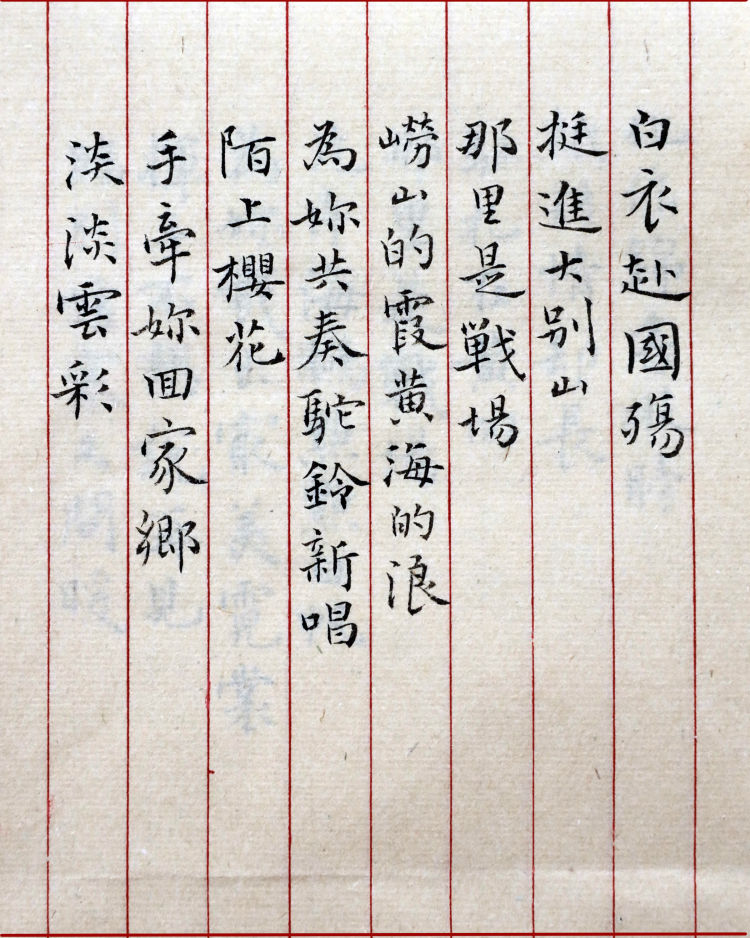 白衣赴國殤
挺進大别山
那里是戦場
嶗山的霞黄海的浪
為妳共奏駝鈴新唱
陌上櫻花
手牽妳回家鄉
淡淡雲彩